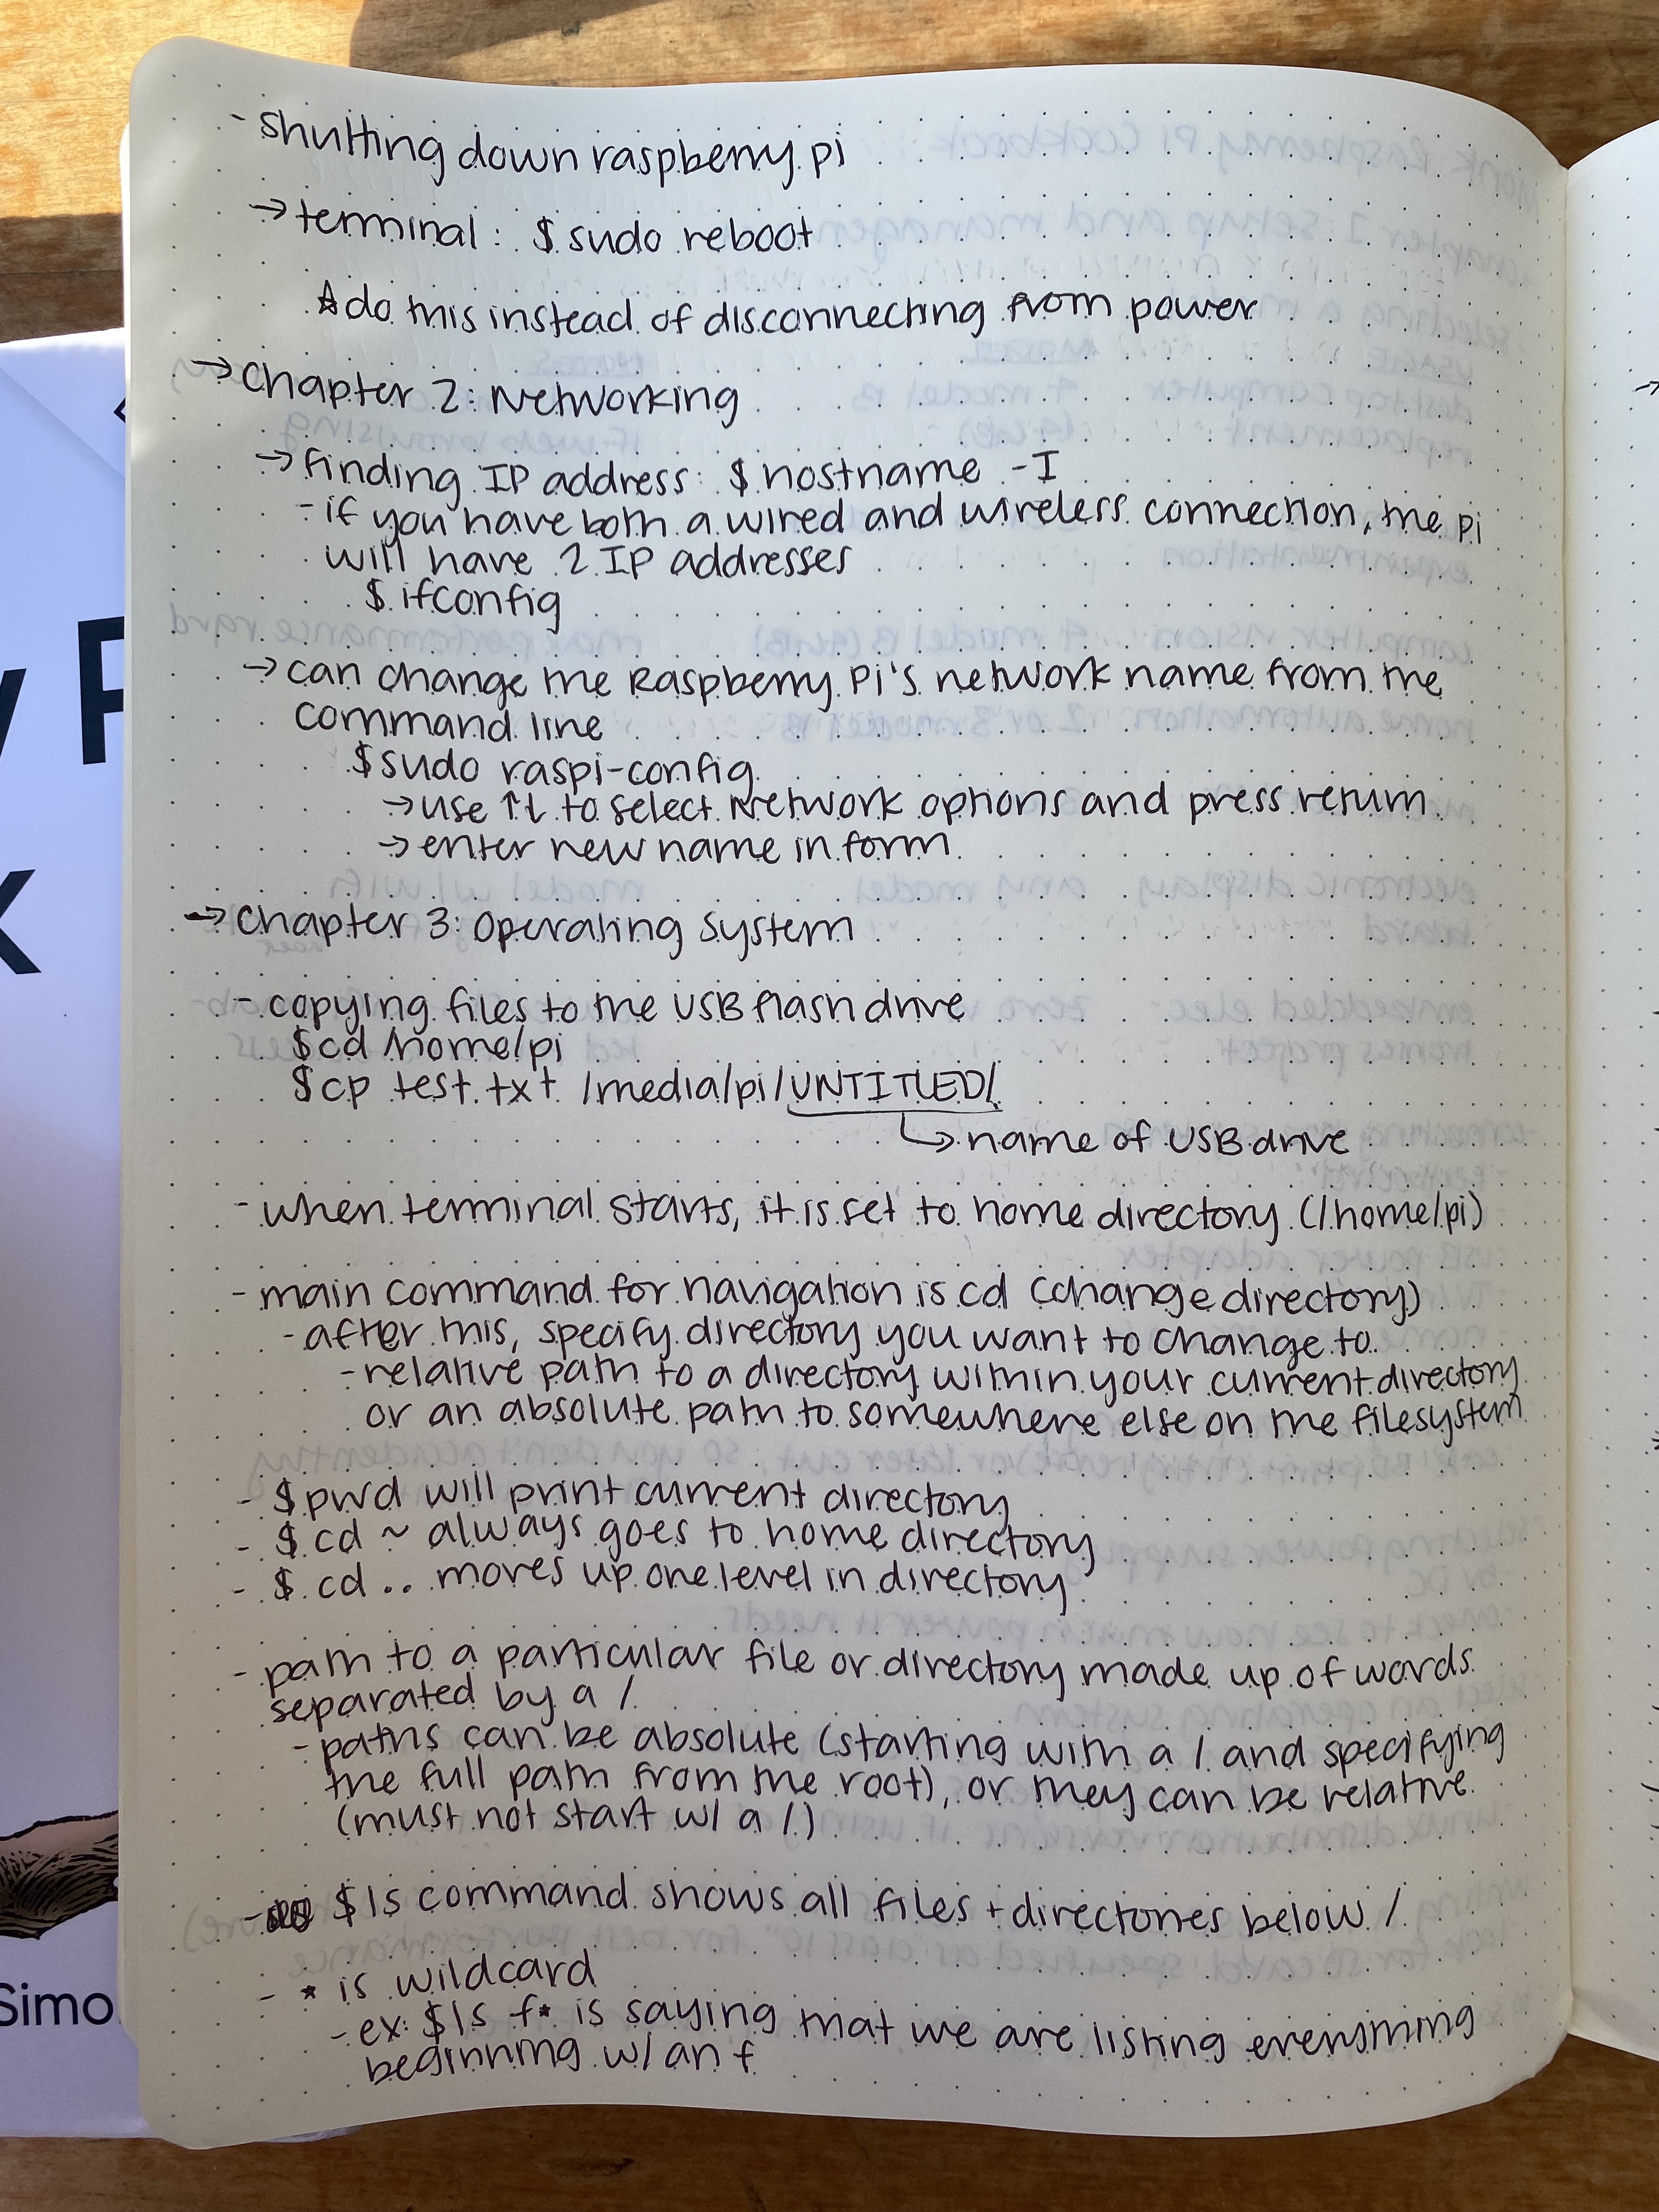 - shutting down raspberry pi
→ terminal: $ sudo reboot
☆ do this instead of disconnecting from power
→ Chapter 2: Networking
→ finding IP address: $ hostname -I
- if you have both a wired and wireless connection, the pi
will have 2 IP addresses
$ ifconfig
→ can change the Raspberry Pi's network name from the
command line
$ sudo raspi-config
→ use ↑↓ to select Network options and press return
→ enter new name in form
→ Chapter 3: Operating System
- copying files to the USB flash drive
$ cd /home/pi
$ cp test.txt /media/pi/UNTITLED/
↳ name of USB drive
- when terminal starts, it is set to home directory (/home/pi)
- main command for navigation is cd (change directory)
- after this, specify directory you want to change to
- relative path to a directory within your current directory
or an absolute path to somewhere else on the filesystem
- $ pwd will print current directory
- $ cd ~ always goes to home directory
- $ cd .. moves up one level in directory
- path to a particular file or directory made up of words
separated by a /
- paths can be absolute (starting with a / and specifying
the full path from the root), or they can be relative
(must not start w/ a /)
- $ ls command shows all files + directories below /
- * is wildcard
- ex: $ ls f* is saying that we are listing everything
beginning w/ an f
Simo